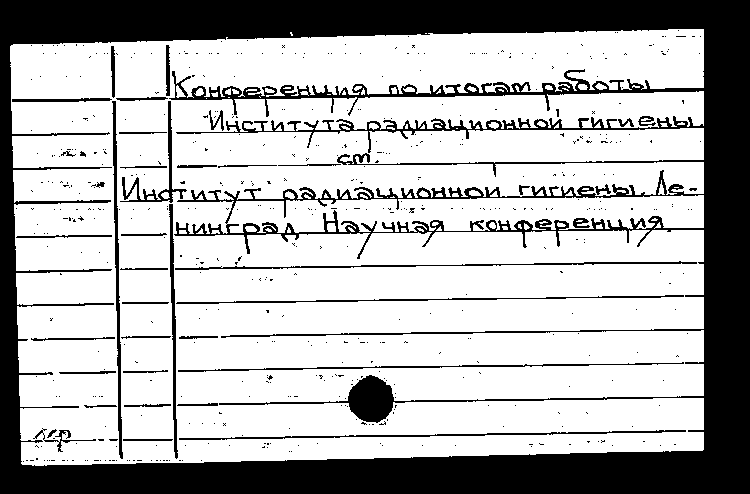 Конференция по итогам работы
Института радиационной гигиены.
см.
Институт радиационной гигиены. Ле-
нинград. Научная конференция.